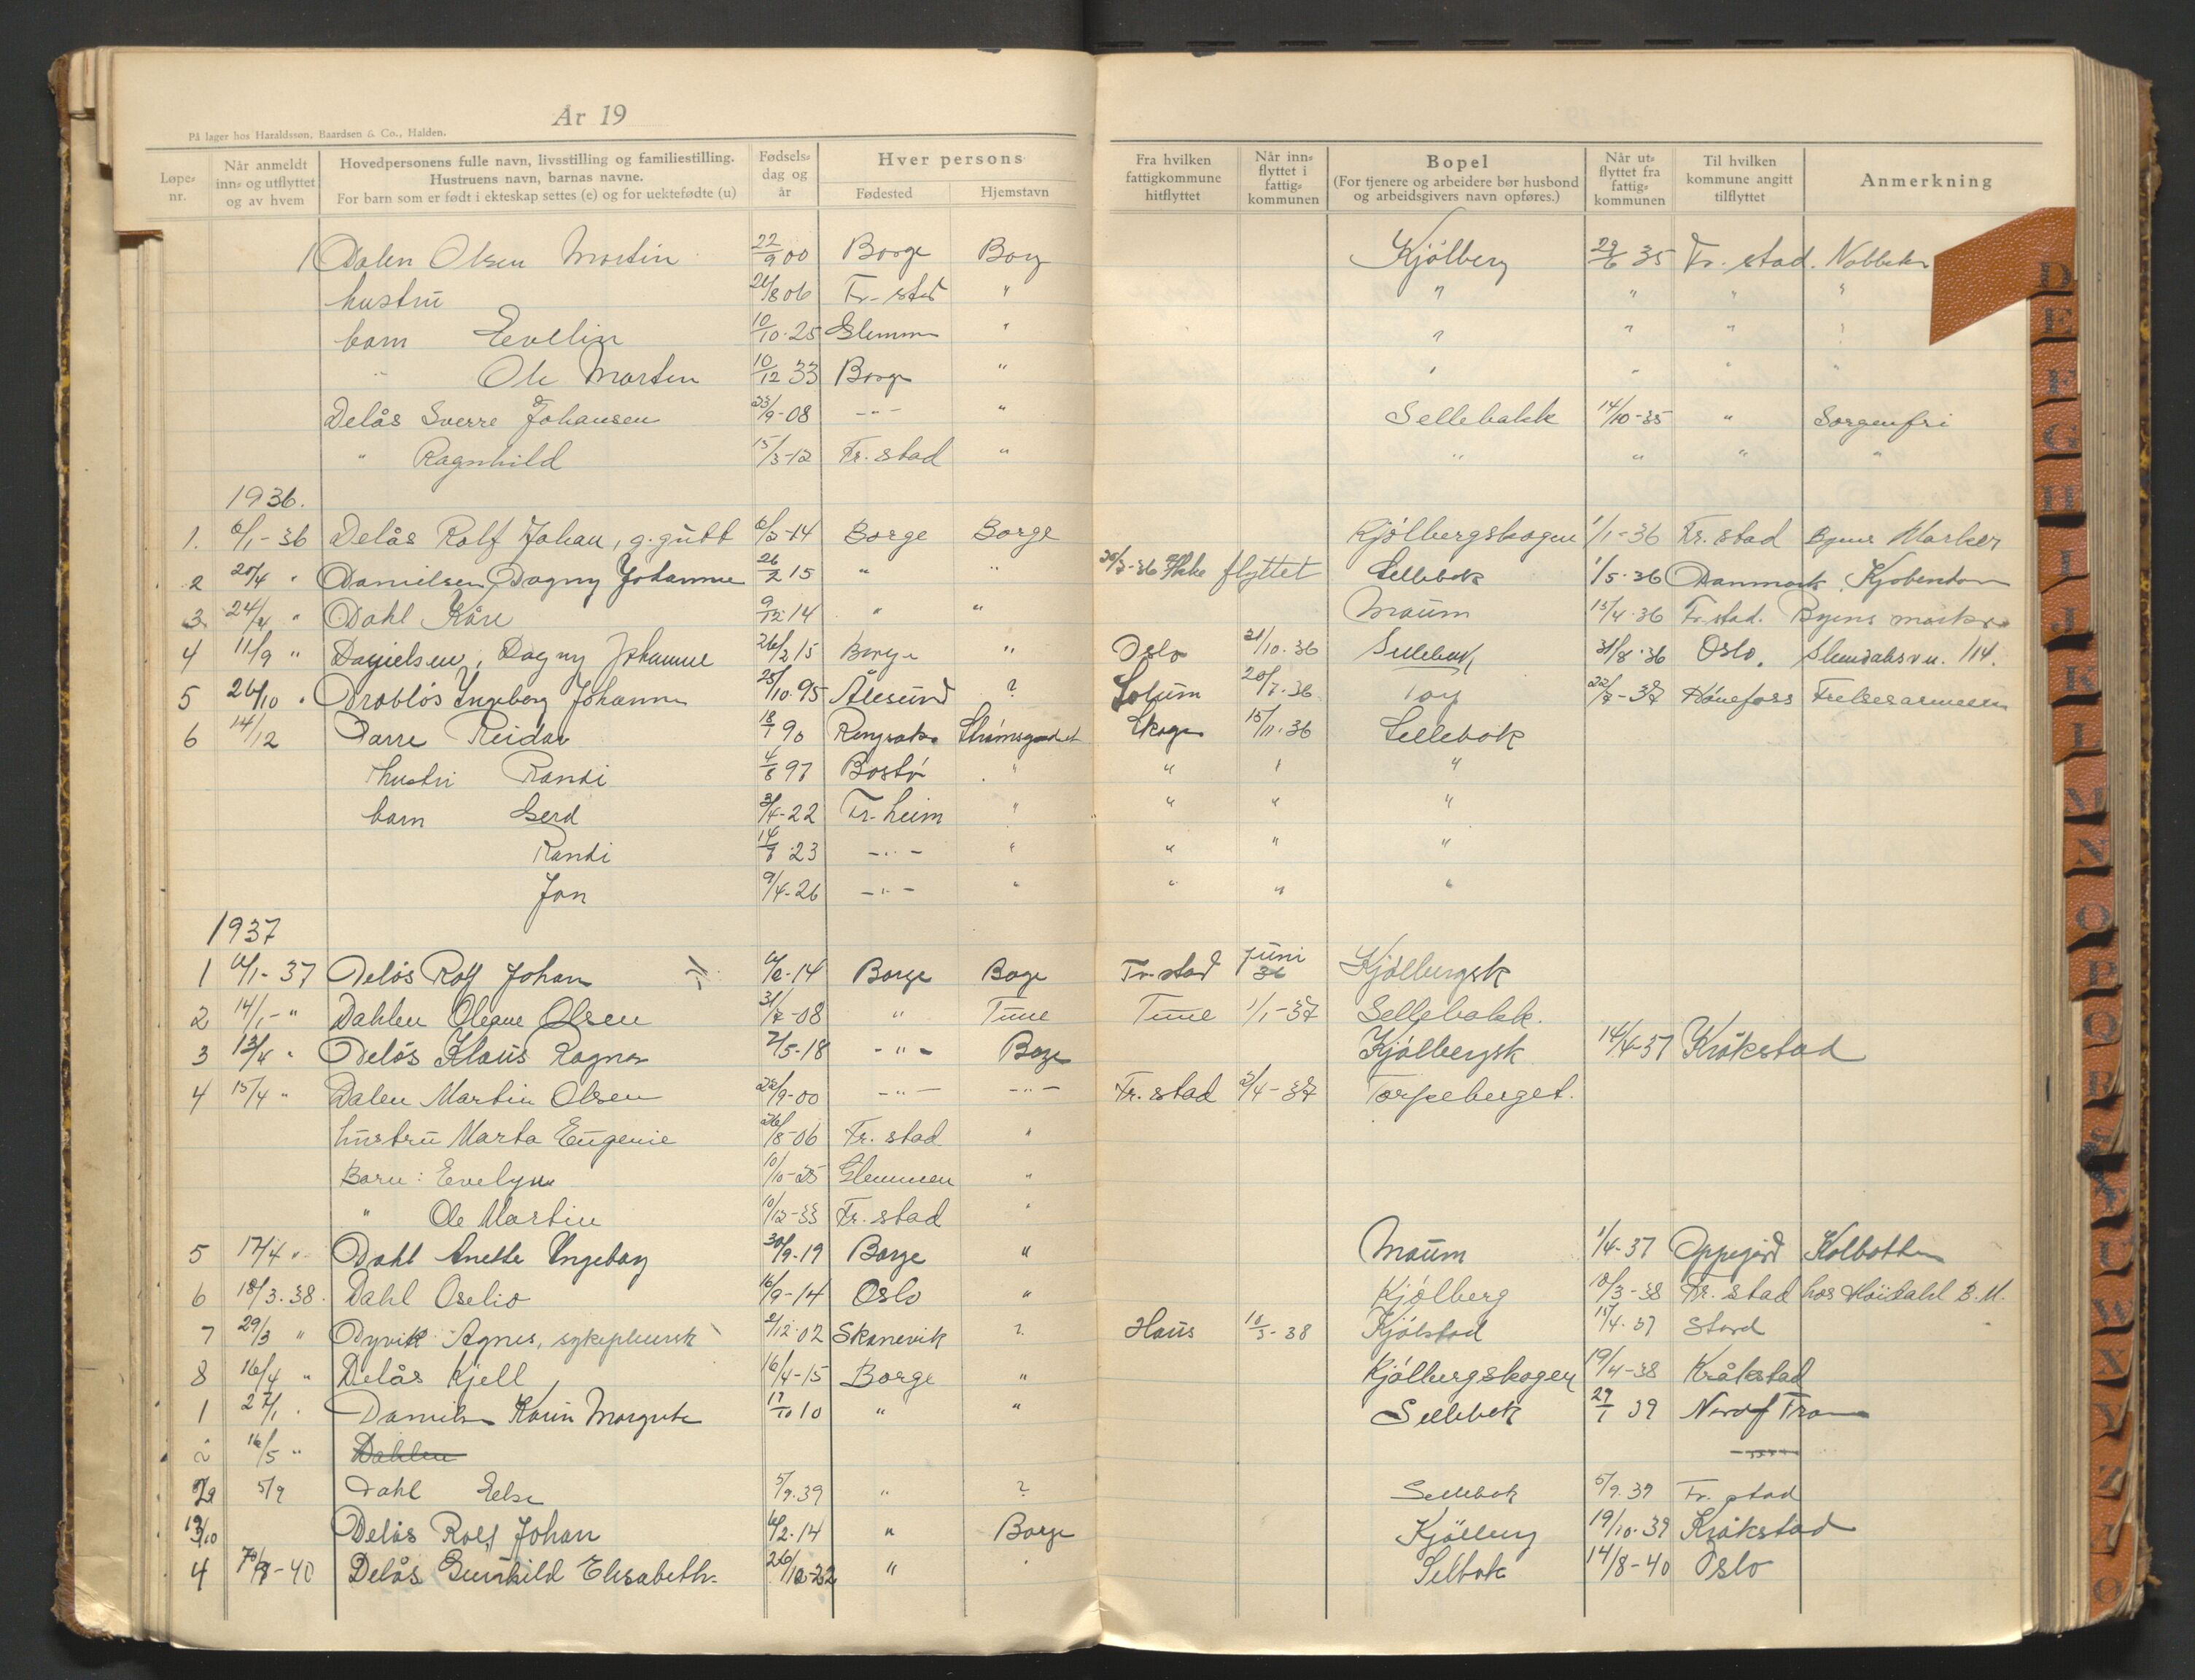 År 19
På lager hos Haraldsson, Baardsen & Co., Halden.
Løpe-nr. | Når anmeldt inn- og utflyttet og av hvem | Hovedpersonens fulle navn, livsstilling og familiestilling. Hustruens navn, barnas navne. For barn som er født i ekteskap settes (e) og for uektefødte (u) | Fødsels-dag og år | Hver persons Fødested | Hjemstavn | Fra hvilken fattigkommune hitflyttet | Når inn-flyttet i fattig-kommunen | Bopel (For tjenere og arbeidere bør husbond og arbeidsgivers navn opføres.) | Når ut-flyttet fra fattig-kommunen | Til hvilken kommune angitt tilflyttet | Anmerkning
1 Dalen Olsen Martin 22/9 00 Borge Borg Kjölberg 29/6 35 Fr. stad.
hustru 26/8 06 Fr-stad " " " " "
barn Evelin 10/10-25 Glemm " " " "
" Ole Marten 10/12 33 Borge " " " " "
Delås Sverre Johansen 23/9-08 -"- " Sellebakk 14/10-35 " Sorgenfri
" Ragnhild 15/3-12 Fr. stad " " " " "
1936.
1. 6/1-36 Delås Rolf Johan, g.gutt 6/2-14 Borge Borge Kjölbergskogen 1/1-36 Fr. stad Byens Marker
2 28/4 " Danielsen Dagny Johanne 26/2 15 " " Ikke flyttet Sellebak 1/5-36 Danmark.
3. 24/4 " Dahl Kåre 9/12 14 " " Maum 15/4-36 Fr. stad. Byens marker
4 11/9 " Danielsen, Dagny Johanne 26/2 15 Borge " Oslo 31/10.36 Sellebak 31/8-36 Oslo.
5 26/10 " Ingeborg Johanne 25/10-95 Ålesund ? Solum 20/7.36 22/7-37 Hönefoss Frelsesarmeen
6 14/12 Darre Reidar 18/1 90 Skoge 15/11.36 Sellebak
hustru Randi 4/8 97 " " " "
barn Gerd 3/4-22 Tr. heim " " " "
Randi 14/8 23 -"- " " " "
Jon 9/4-26 -"- " " " "
1937
1 6/1-37 Delås Rolf Johan 6/2-14 Borge Boge Fr. stad Juni 36 Kjölbergsk
2 14/1-" Dahlen Olsen 31/7-08 " Tune Tune 1/1-37 Sellebakk.
3 13/4 " Delås Klaus Ragnar 2/5-18 -"- Boge Kjölbergsk 14/4-37 Kråkstad
4 15/4 " Dalen Martin Olsen 22/9-00 -"- -"- Fr. stad 2/4-37 Torpeberget.
hustru Marta Eugenie 26/8-06 Fr. stad "
Barn: Evelyn 10/10-25 Glemmen "
" Ole Martin 10/12-33 Fr. stad "
5 17/4 " Dahl Anette Ingeborg 30/9-19 Borge " Maum 1/4-37 Oppegård Kolbotten
6 18/3.38. Dahl 16/9-14 Oslo " Kjölberg 18/3-38 Fr. stad hos
7 29/3 " Dyvik Agnes, 2/12-02 Skånevik ? Haus 10/3-38 Kjölstad 15/4-37 Stord
8 16/4 " Delås Kjell 16/4-15 Borge " Kjölbergskogen 19/4-38 Kråkstad
1 27/1 " Daniels Karin Margrete 17/10 10 " " Sellebek 27/1 39
2 16/5 " Dahlen
5/9 Dahl Else 5/9.39 " ? Sellebak 5/9.39 Fr. stad
19/10 Delås Rolf Johan 6/2-14 " Borge Kjölberg 19/10-39 Kråkstad
4 -40 Delås Gunhild Elisabeth 26/12-22 " " Selbak 14/8-40 Oslo